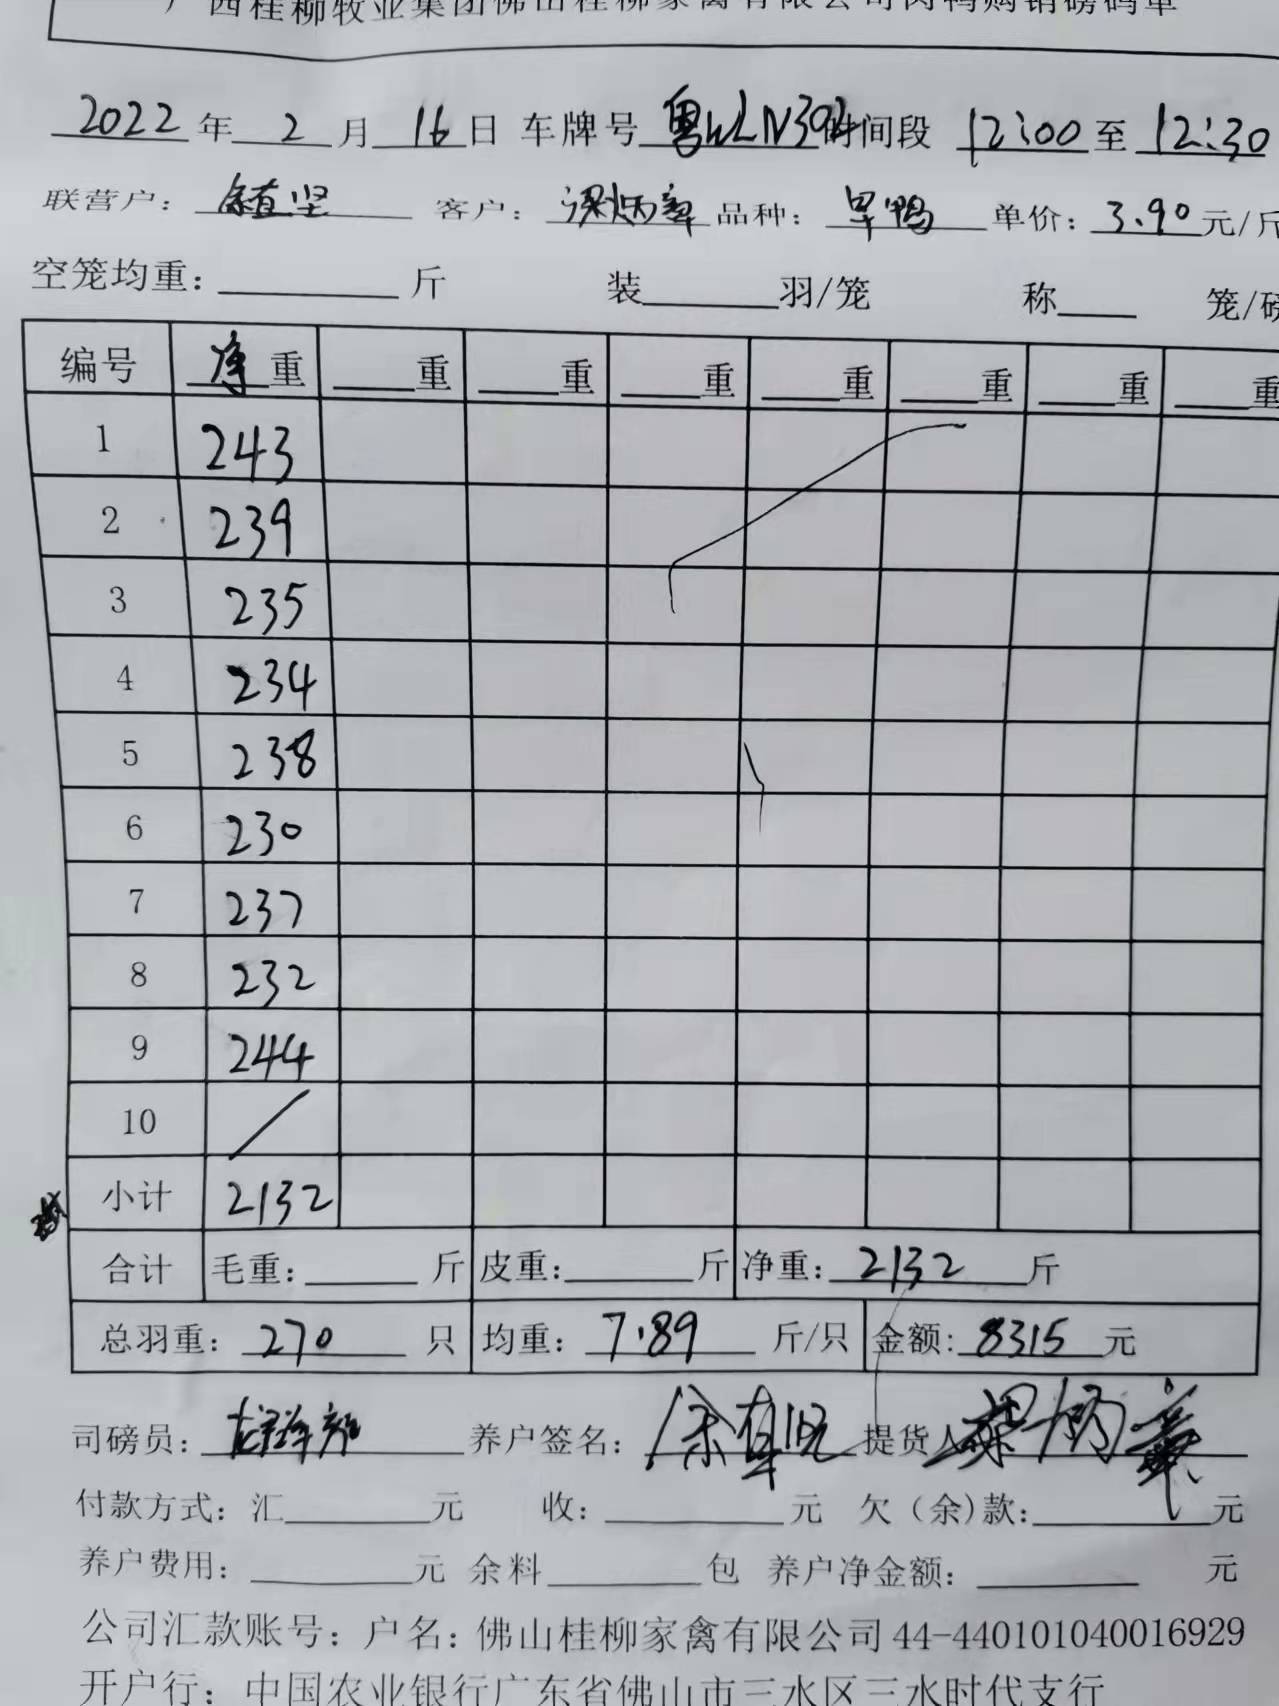 广西桂柳牧业集团佛山桂柳家禽有限公司肉鸭购销磅码单
2022年 2 月 16日 车牌号 粤WLN394 时间段 12:00 至 12:30
联营户: 余直坚 客户: 梁炳章 品种: 旱鸭 单价: 3.90元/斤
空笼均重: 斤 装 羽/笼 称 笼/磅
编号 净重 重 重 重 重 重 重 重
1 243
2 239
3 235
4 234
5 238
6 230
7 237
8 232
9 244
10 /
小计 2132
合计 毛重: 斤 皮重: 斤 净重: 2132 斤
总羽重: 270 只 均重: 7.89 斤/只 金额: 8315 元
司磅员: 养户签名: 提货人 梁炳章
付款方式: 汇 元 收: 元 欠(余)款: 元
养户费用: 元 余料 包 养户净金额: 元
公司汇款账号: 户名: 佛山桂柳家禽有限公司 44-440101040016929
开户行: 中国农业银行广东省佛山市三水区三水时代支行